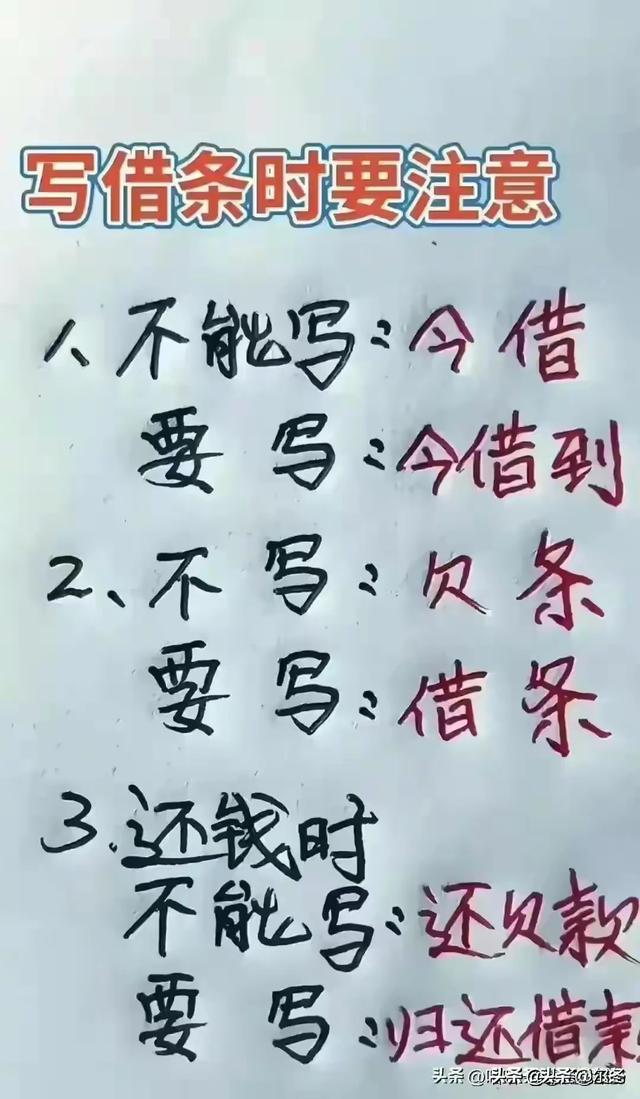 写借条时要注意
1、不能写:今借
要写:今借到
2、不写:欠条
要写:借条
3.还钱时
不能写:还欠款
要写:归还借款
头条